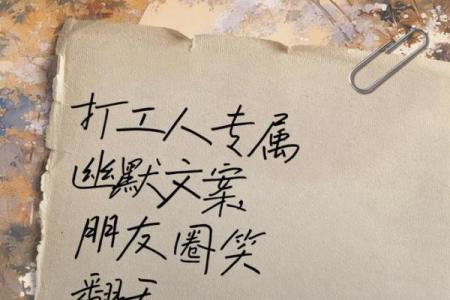 打工人专属
幽默文案，
朋友圈笑
翻天